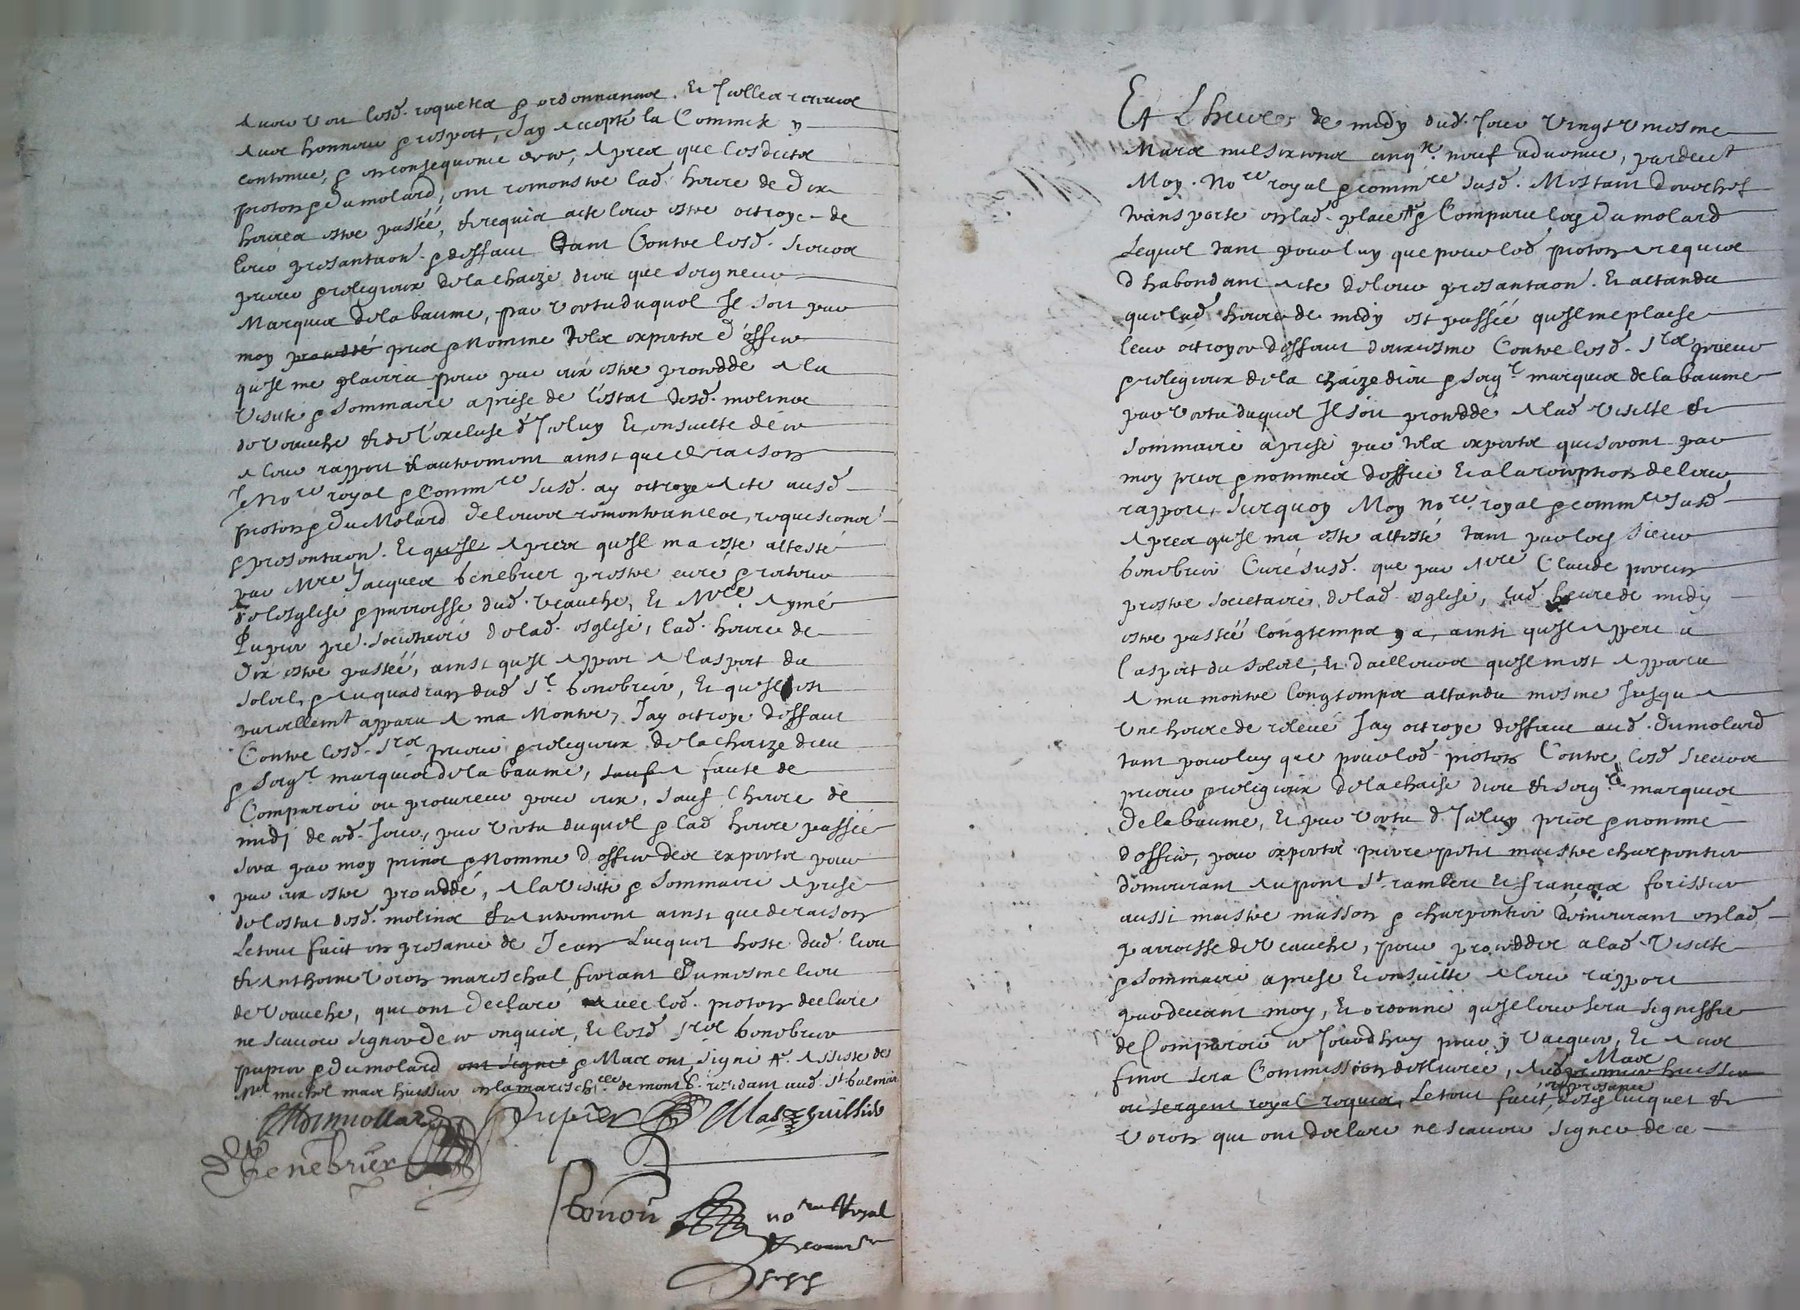 Avoir veu lesd. requeste & ordonnance. Et icelles receues
avec honneur & respect, J'ay accepté la Commis. y
contenue, & en consequence de ce, apres que lesdicts
proton & Dumolard, ont remonstré lad. heure de dix
heures estre passéé, & requis acte leur estre octroyé de
leur presentaon. & deffaut tant Contre lesd. sieurs
prieur & religieux dela chaize dieu que seigneur
Marquis dela baume, par vertu duquel Il soit par
moy procedé pris & Nommé tels expertz d'office
qu'Il me plairra pour par eux estre proceddé a la
visitte & Sommaire aprise de l'estat desd. molins
de veauche & de l'escluse d'Iceluy Et ensuitte de ce
a leur rapport & autrement ainsi que de raison
Je No.re royal & Comm.re susd. ay octroyé Acte ausd.
proton & Du Molard de leurs remontrances, requisions
& presentaon. Et qu'Il apres qu'Il m'a esté attesté
par M.re Jacques benebrier prestre curé & recteur
de l'esglise & parroisse dud. veauche, Et M.re Aymé
Pupier pre. societaire de lad. esglise, lad. heure de
Dix estre passéé, ainsi qu'Il appert a l'aspect du
soleil, & au quadran dud. S.r benebrier, Et qu'Il est
pareillem.t apparu a ma Montre, J'ay octroyé deffaut
Contre lesd. S.rs prieur & religieux de la chaize dieu
& Seig.r marquis de la baume, sauf a faute de
Comparoir ou procureur pour eux, sauf l'heure de
midi de ced. Jour, par vertu duquel & lad. heure passéé
sera par moy prins & Nommé d'office des expertz pour
par eux estre proceddé, a la visitte & Sommaire aprise
de l'estat desd. molins & autrement ainsi que de raison
Le tout faict en presance de Jean Lucquet hoste dud. lieu
& Anthoine veron mareschal ferrant du mesme lieu
de veauche, qui ont declaré avec led. proton declaré
ne scavoir signer de ce enquis, Et lesd. S.rs benebrier
pupier & Dumolard ont signé & Max ont signé Assisté de
M.e michel max huissier en la mareschcee de mont. residant aud. S.t galmier
Dumollard Pupier Max huissier
Benebrier
Bonon no.re Royal
& comm.re
susd.
Et L'heure de midy dud. Jour vingt uniesme
Mars mil six cens cinq.te neuf advenue, pardev.t
Moy. No.re royal & comm.re susd. M'estant derechef
transporté en lad. place & Comparu led. Dumolard
Lequel tant pour luy que pour led. proton a requis
d'habondant acte de leur presantaon. Et attandu
que lad. heure de midy est passéé qu'Il me plaise
leur octroyer deffaut deuxiesme Contre lesd. S.rs prieur
& religieux de la chaize dieu & seig.r marquis de la baume
par vertu duquel Il soit proceddé a lad. visitte &
sommaire aprise par tels expertz qui seront par
moy pris & nommés d'office Et a la reception de leur
rapport, Surquoy Moy No.re royal & comm.re susd.
apres qu'Il m'a esté attesté tant par led. sieur
benebrier Curé susd. que par M.re Claude
prestre societaire de lad. esglise, lad. heure de midy
estre passéé longtemps y a, ainsi qu'Il appert a
l'aspect du soleil, Et d'ailleurs qu'Il m'est apparu
a ma montre longtemps attandu mesme Jusqu'a
Une heure de releue J'ay octroyé deffaut aud. Dumolard
tant pour luy que pour led. proton Contre lesd. sieurs
prieur & religieux de la chaise dieu & seig.r marquis
de la baume, Et par vertu d'Iceluy pris & nommé
d'office, pour expertz pierre petit maistre charpentier
demeurant au pont S.t rambert Et françois forissier
aussi maistre masson & charpentier demeurant en lad.
parroisse de veauche, pour procedder a lad. visitte
& sommaire aprise Et ensuitte a leur rapport
pardevant moy, Et ordonné qu'Il leur sera signiffié
de Comparoir ce Jourd'huy pour y vacquer, Et a ces
fins sera Commission delivrée, aud. Max premier huissier
ou sergent royal requis, Le tout faict, en presance desd. lucquet &
veron qui ont declaré ne scavoir signer de ce